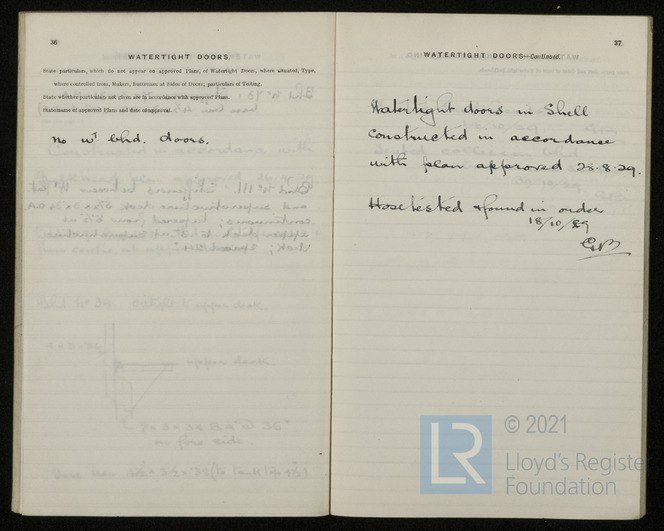 36
WATERTIGHT DOORS.
State particulars, which do not appear on approved Plans, of Watertight Doors, where situated, Type,
where controlled from, Makers, Entireness of Sides of Doors; particulars of Testing.
State whether particulars not given are in accordance with approved Plans.
State name of approved Plans and date of approval.
no wt bhd. doors.
37
WATERTIGHT DOORS—Continued.
Watertight doors in Shell
constructed in accordance
with plan approved 28-8-29.
Hose tested & found in order
18/10/29
© 2021
LR
Lloyd's Register
Foundation